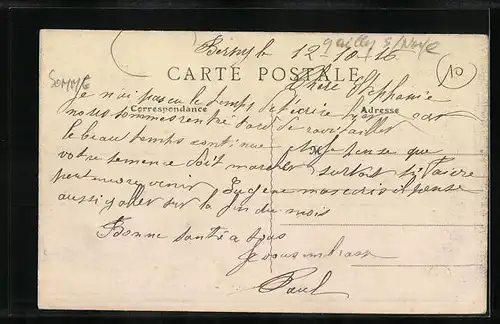 Ailly s/Noye
12 10 16
Somme
10
CARTE POSTALE
Chère Stéphanie
Correspondance
Adresse
Je n'ai pas eu le temps d'écrire hier car
nous sommes rentré tard de
le beau temps continue je pense que
votre semence doit marcher surtout si
peut revenir Eugène
aussi y aller sur la fin du mois
Bonne santé a tous
Je vous embrasse
Paul